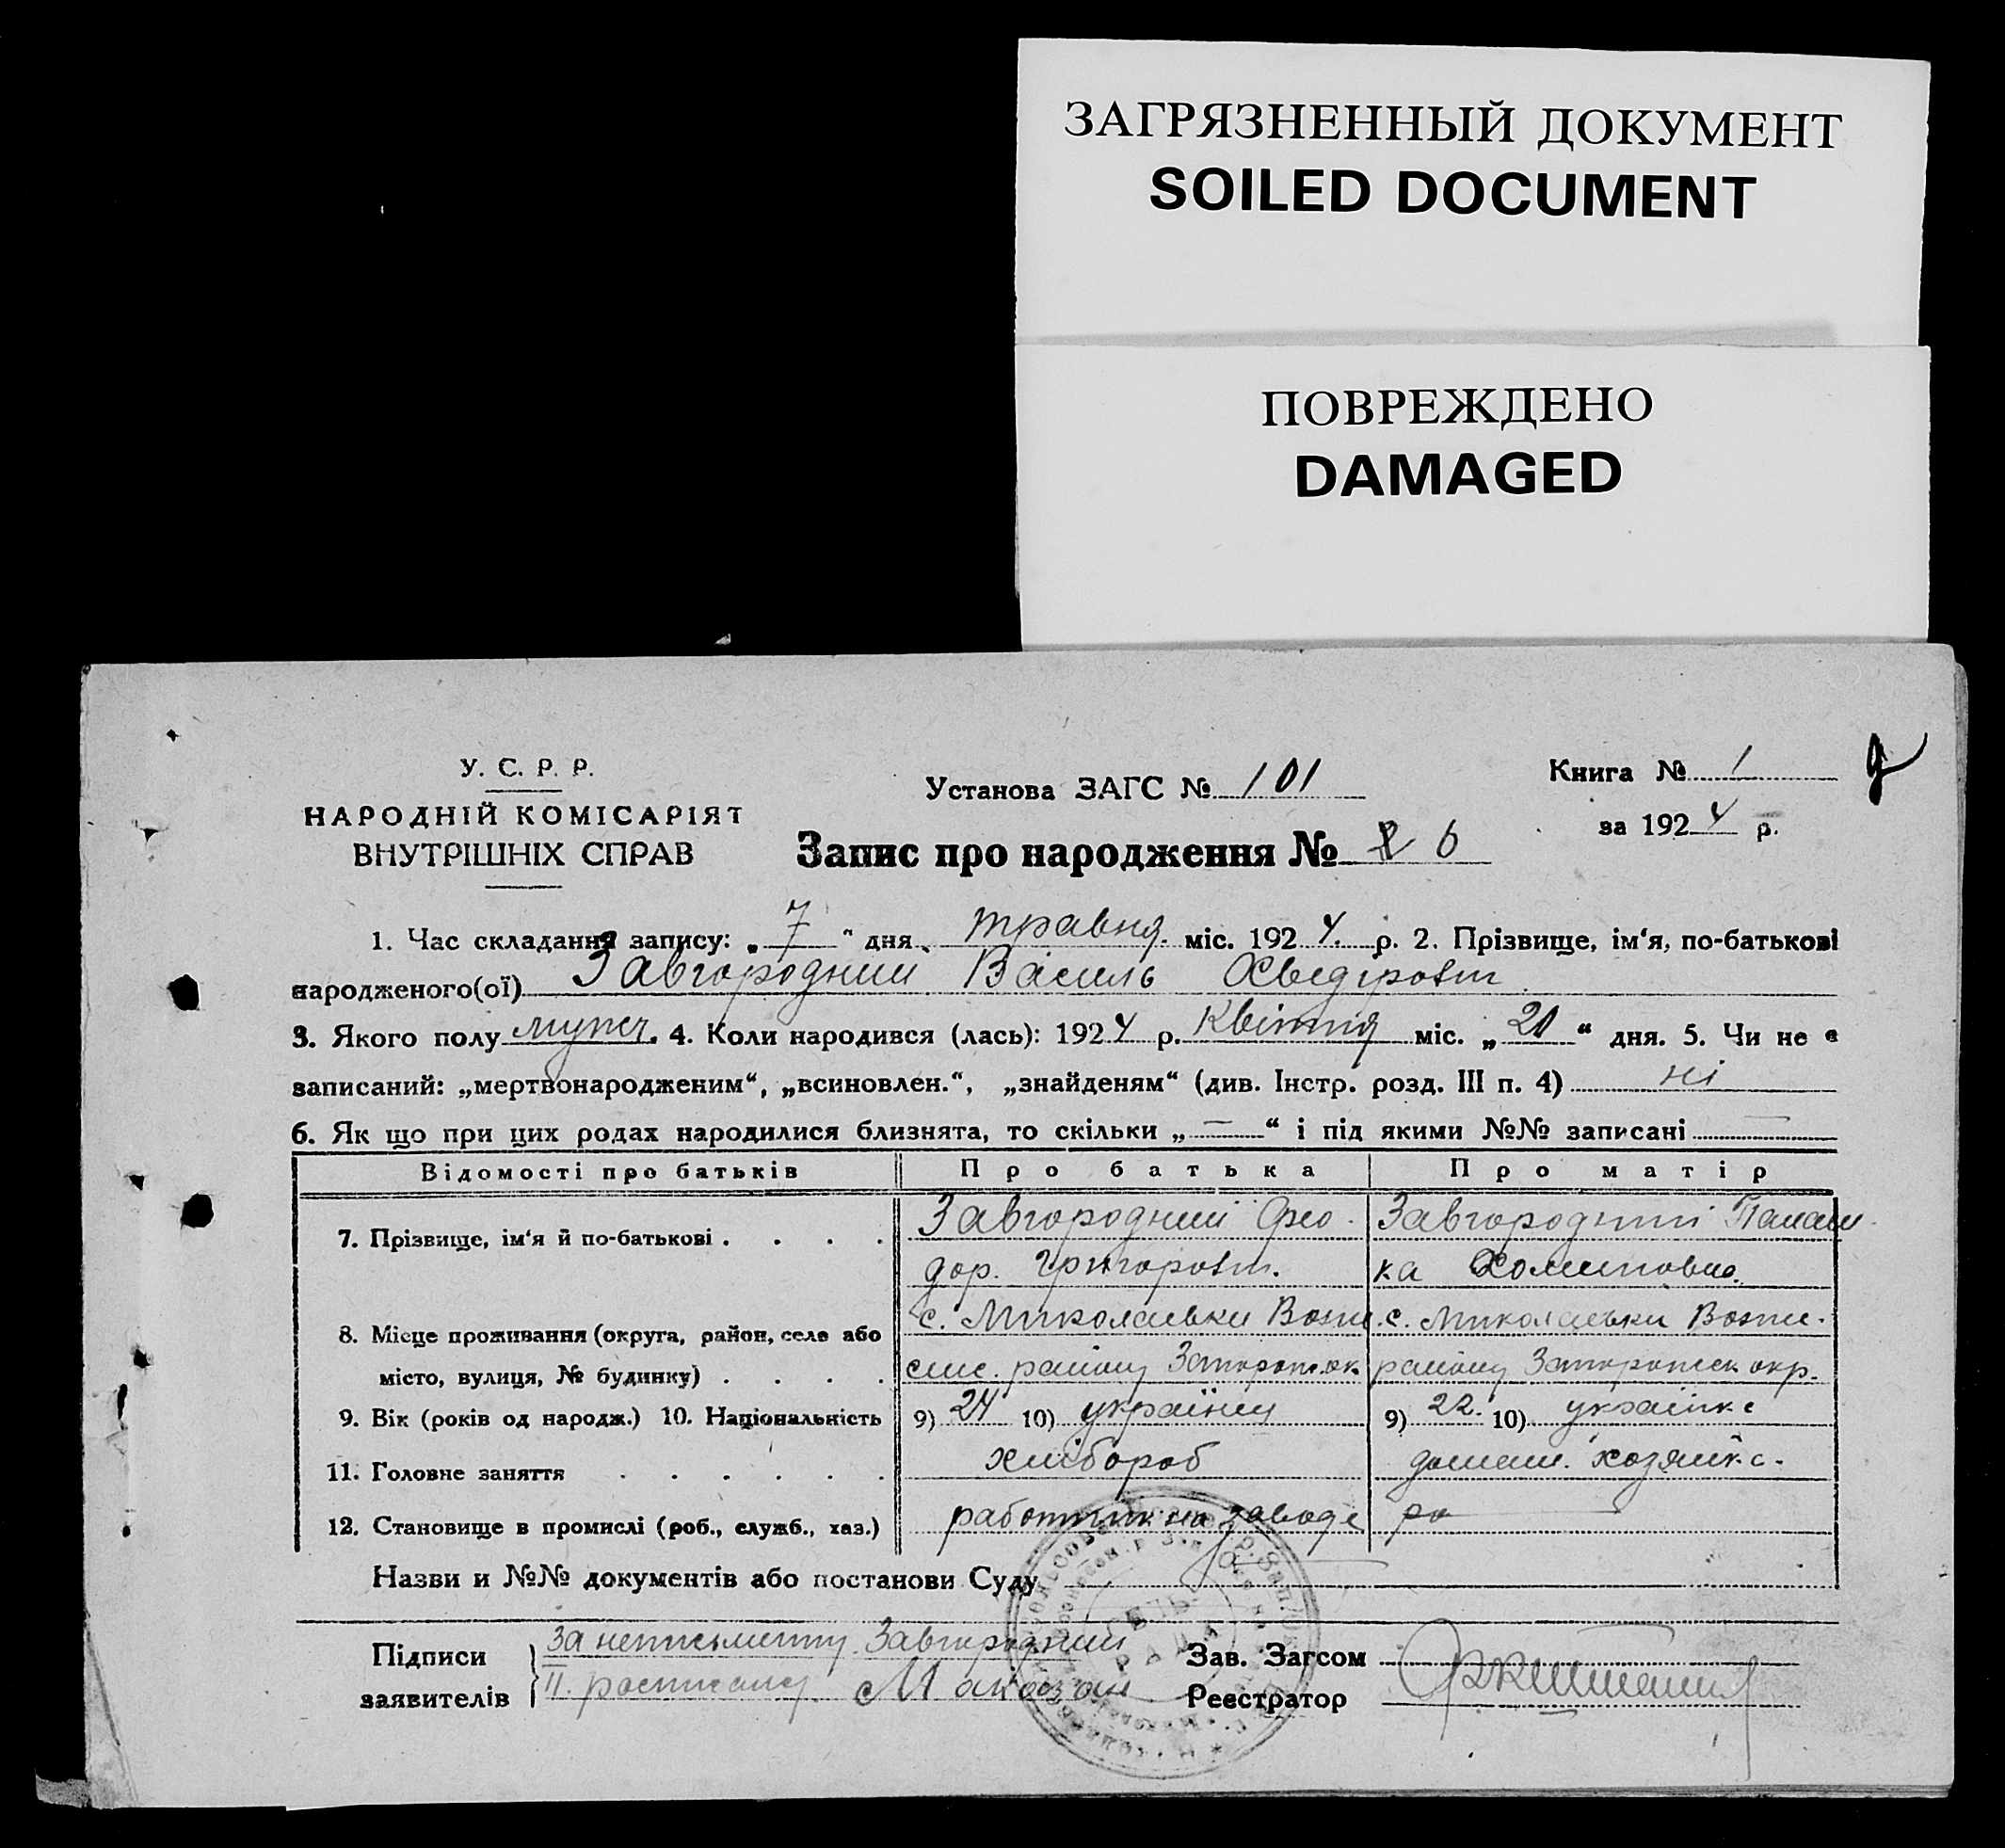 ЗАГРЯЗНЕННЫЙ ДОКУМЕНТ
SOILED DOCUMENT
ПОВРЕЖДЕНО
DAMAGED
У. С. Р. Р.
НАРОДНІЙ КОМІСАРІЯТ
ВНУТРІШНІХ СПРАВ
Установа ЗАГС № 101
Книга № 1
за 1924 р.
Запис про народження № 6
1. Час складання запису: „ 7 “ дня травня міс. 1924. р. 2. Прізвище, ім‘я, по-батькові
народженого(ої) Завгородний Василь Хведіровіт
3. Якого полу мужеч. 4. Коли народився (лась): 1924 р. Квітня міс. „ 20 “ дня. 5. Чи не є
записаний: „мертвонародженим“, „всиновлен.“, „знайденям“ (див. Інстр. розд. III п. 4) ні
6. Як що при цих родах народилися близнята, то скільки „ — “ і під якими №№ записані —
Відомості про батьків Про батька Про матір
7. Прізвище, ім‘я й по-батькові . . . . Завгородний Фео- Завгородний Панаш-
дор. Григоровіт. ка Хоминовна.
8. Місце проживання (округа, район, село або с. Миколаевки Возне с. Миколаевки Возне-
місто, вулиця, № будинку) . . . . сенс. району Запорожск. району Запорожск окр.
9. Вік (років од народж.) 10. Національність 9) 24 10) українец 9) 22. 10) українка
11. Головне заняття . . . . . . хлібороб домаш. хозяйка.
12. Становище в промислі (роб., служб., хаз.) работник на заводе
Назви и №№ документів або постанови Суду
Підписи За неписьменну Завгородний
заявителів П. росписалу
Зав. Загсом
Реєстратор